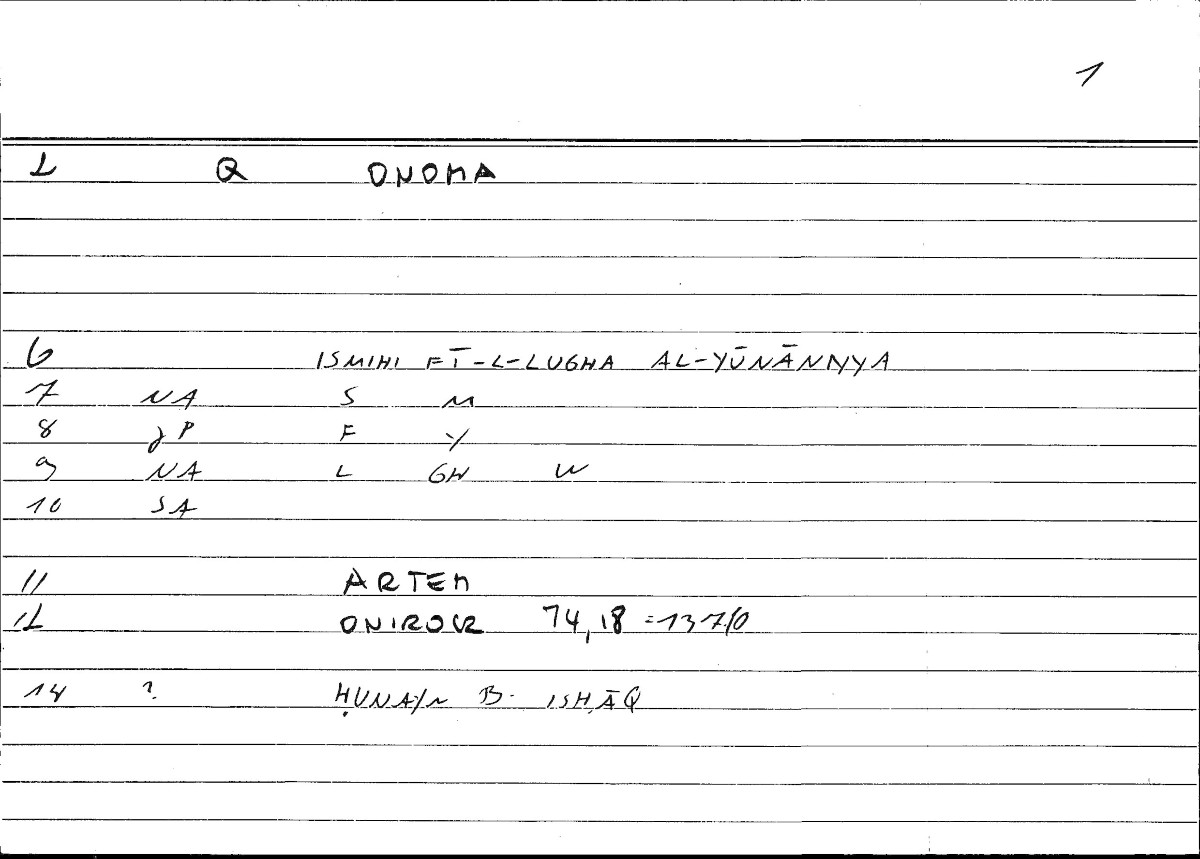 1
2 Q ONOMA
6 ISMIHI FĪ-L-LUGHA AL-YŪNĀNIYYA
7 NA S M
8 JP F Y
9 NA L GH W
10 SA
11 ARTEM
12 ONIROCR 74,18 =137,10
14 ? ḤUNAYN B. ISḤĀQ